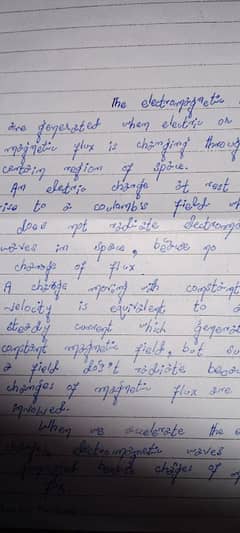 The electromagnetic
are generated when electric or
magnetic flux is changing through
certain region of space.
An eletric charge at rest
rise to a coulamb's field
does not radiate
waves in space, no
change of flux.
A charge moving with constant
velocity is equivelent to a
steady current which
constant magnetic field, but
a field does't radiate
changes of magnetic flux are
involved.
When we accelerate the
electromagnetic waves
changes of